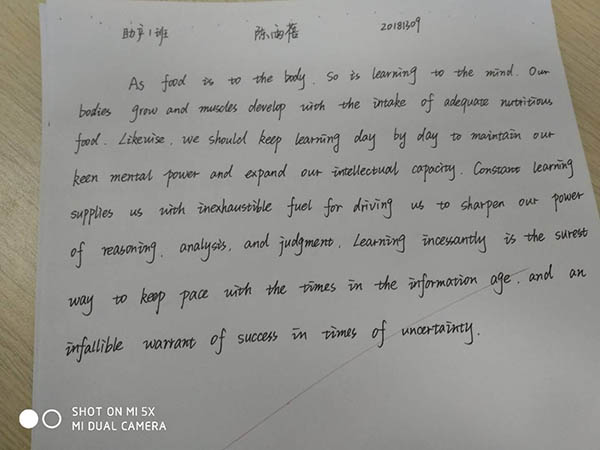 助产1班 陈雨蓓 20181309
As food is to the body, so is learning to the mind. Our
bodies grow and muscles develop with the intake of adequate nutritious
food. Likewise, we should keep learning day by day to maintain our
keen mental power and expand our intellectual capacity. Constant learning
supplies us with inexhaustible fuel for driving us to sharpen our power
of reasoning, analysis, and judgment. Learning incessantly is the surest
way to keep pace with the times in the information age, and an
infallible warrant of success in times of uncertainty.
SHOT ON MI 5X
MI DUAL CAMERA